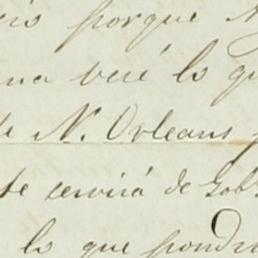 porque
veré lo
N. Orleans
te servirá de Gob
lo que pondr